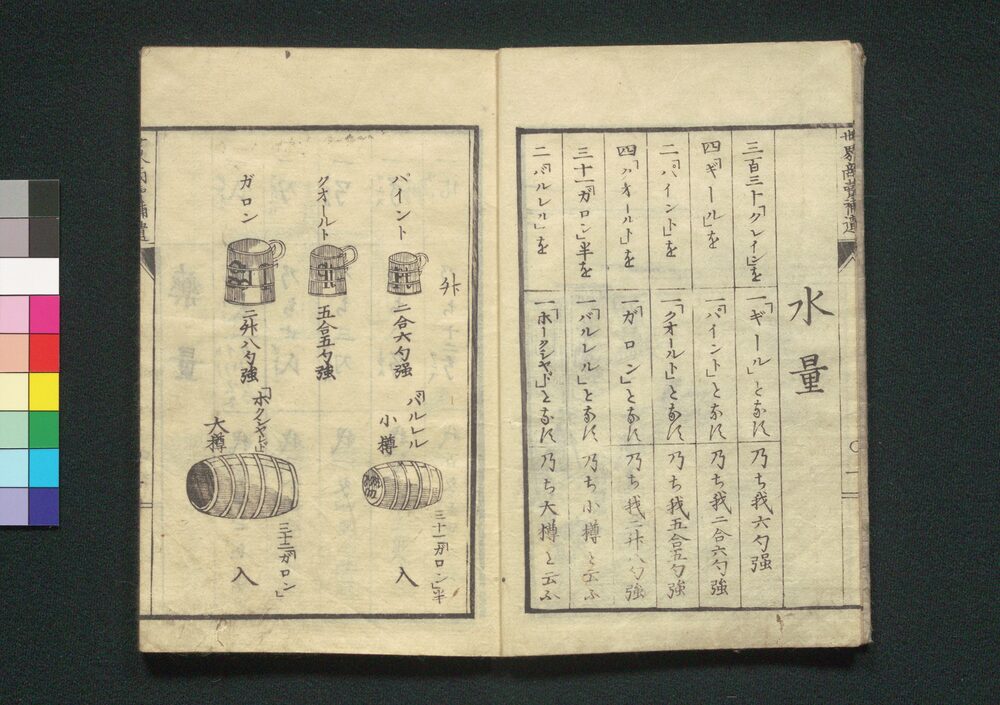 世界商賣往來補遺
水量
三百三十「グレイン」を 一「ギール」となす 乃ち我六勺强
四「ギール」を 一「パイント」となす 乃ち我二合六勺強
二「パイント」を 一「クオールト」となす 乃ち我五合五勺強
四「クオールト」を 一「ガロン」となす 乃ち我二升八勺強
三十一「ガロン」半を 一「バルレル」となす 乃ち小樽と云ふ
二「バルレル」を 一「ホークシヤド」となす 乃ち大樽と云ふ
升
パイント
二合六勺強
クオールト
五合五勺強
ガロン
二升八勺強
バルレル
小樽
三十一「ガロン」半
入
「ホクシヤド」
大樽
入